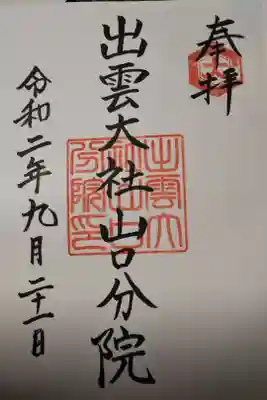 奉拝
出雲大社山口分院
令和二年九月二十一日
出雲大
社山口
分院印